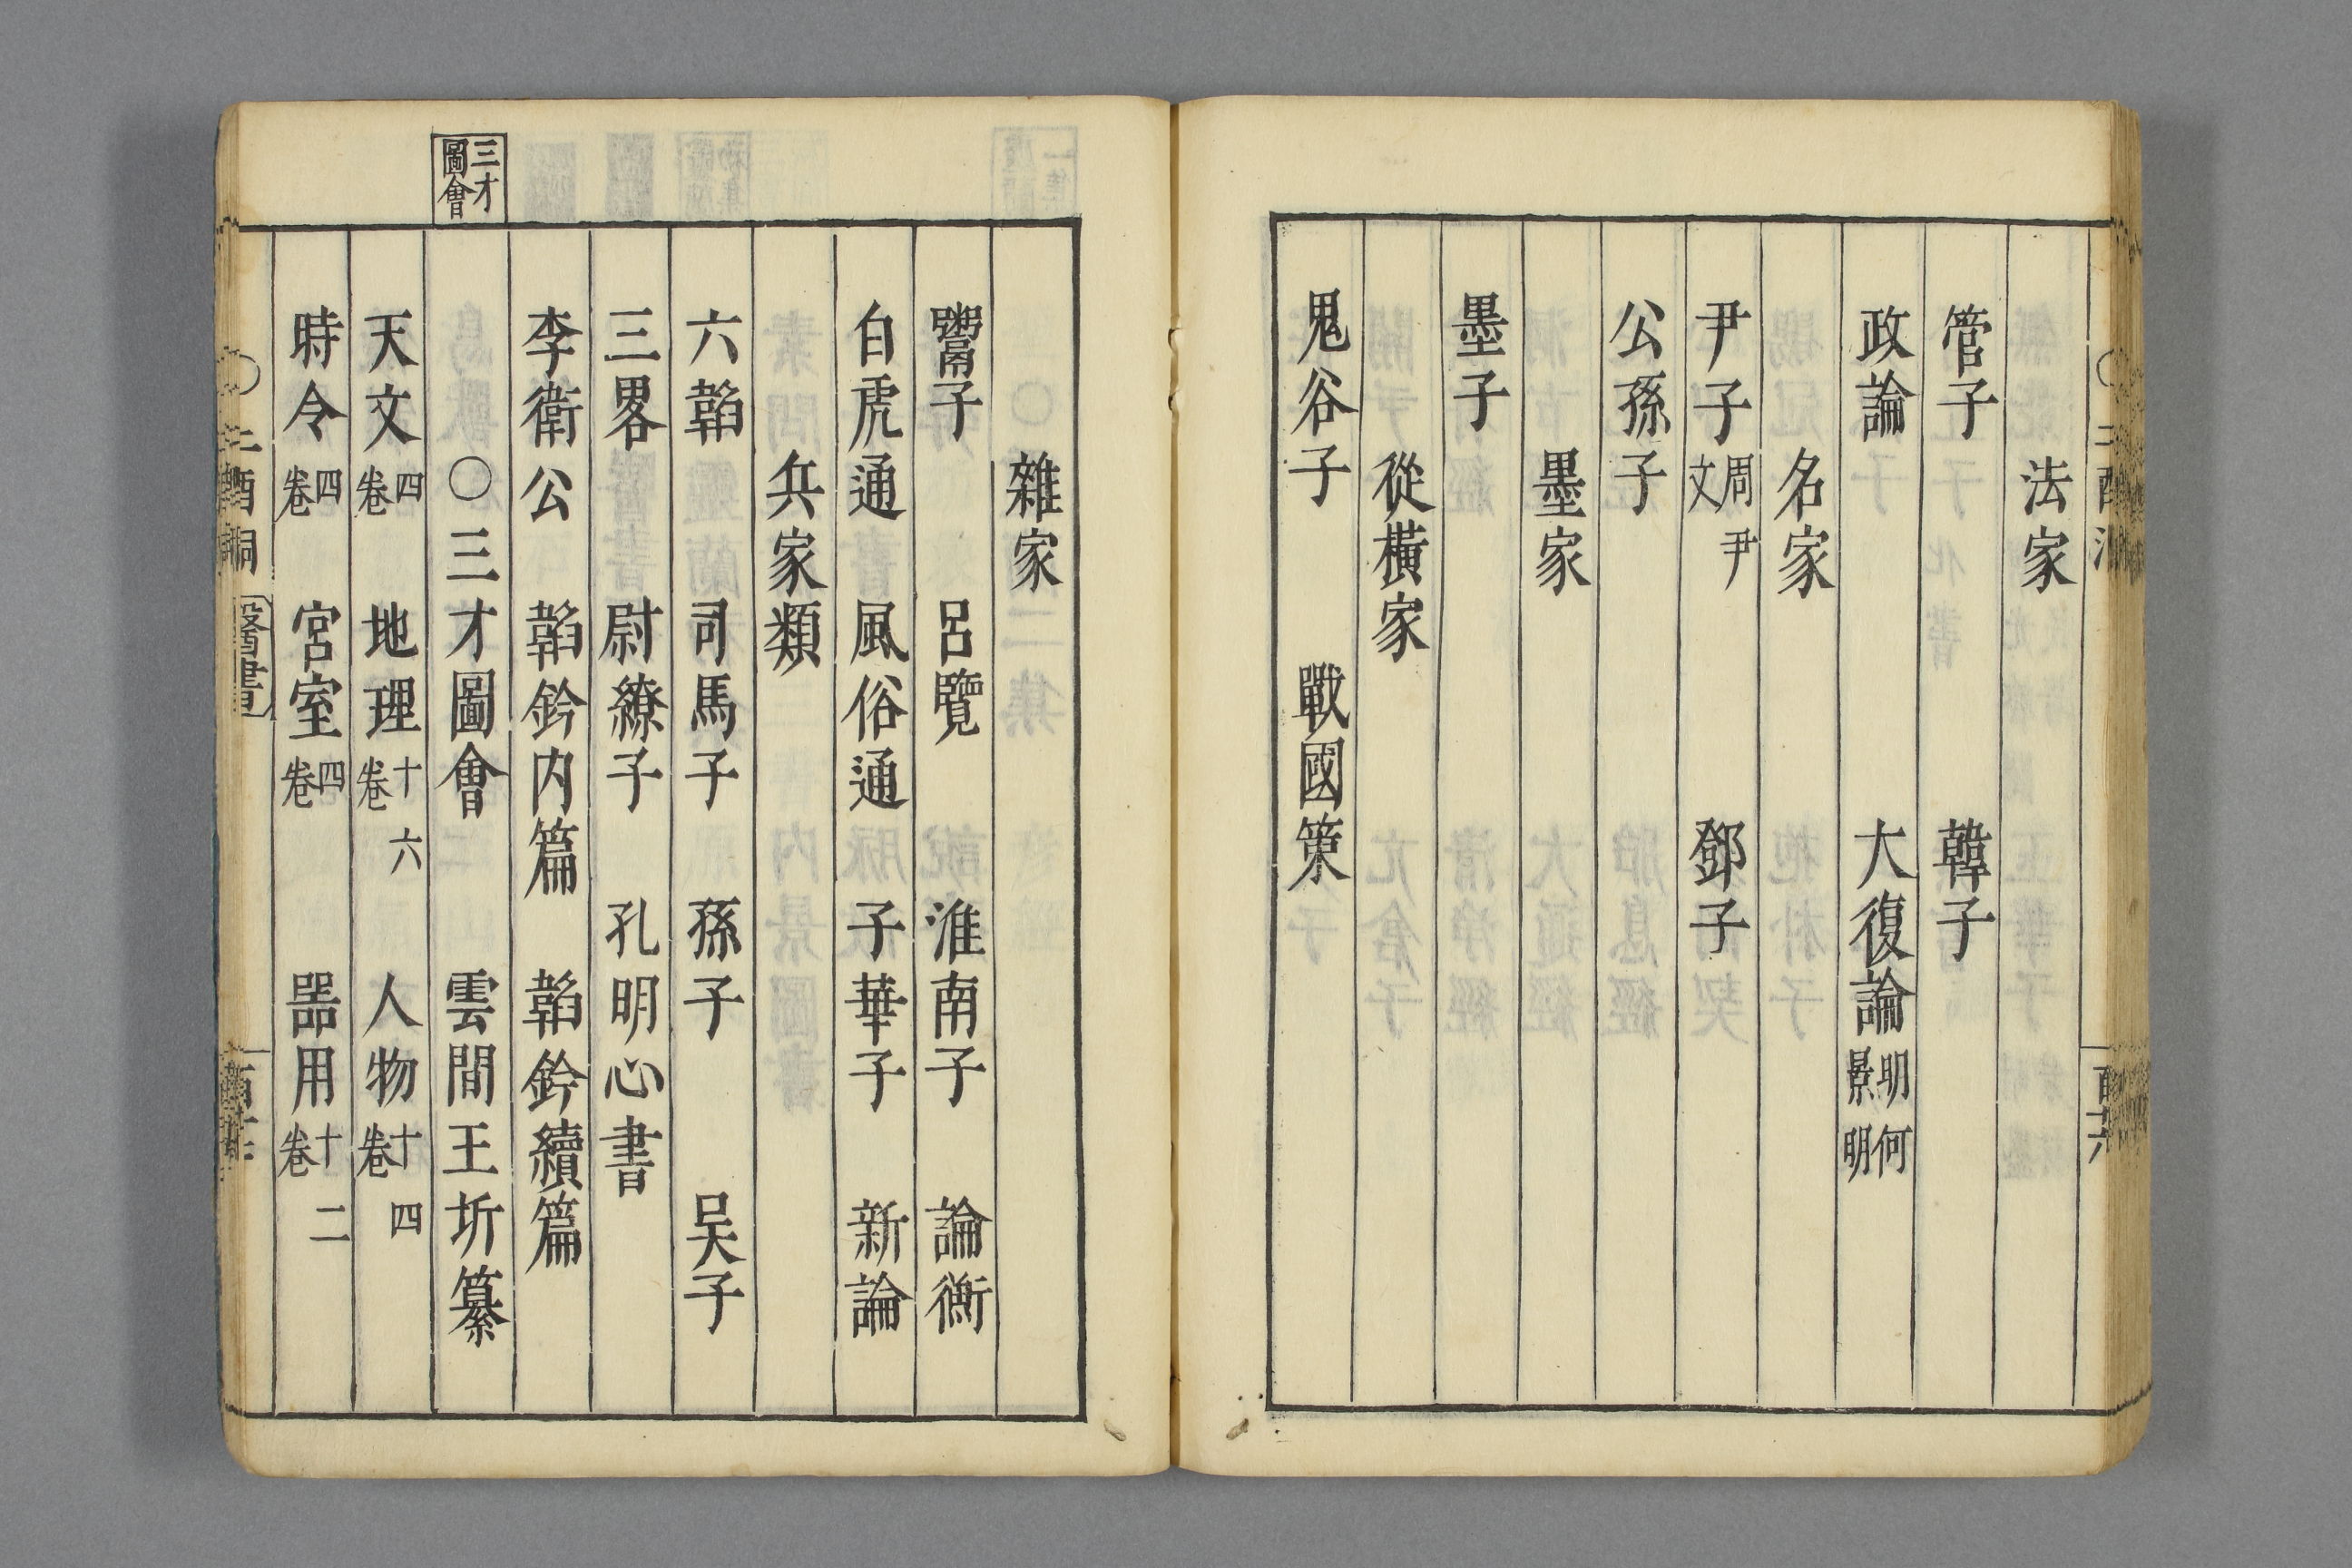 法家
管子 韓子
政論 大復論明何景明
名家
尹子周尹文 鄧子
公孫子
墨家
墨子
從橫家
鬼谷子 戰國策
雜家
鬻子 呂覽 淮南子 論衡
白虎通 風俗通 子華子 新論
兵家類
六韜 司馬子 孫子 吳子
三畧 尉繚子 孔明心書
李衛公 韜鈐内篇 韜鈐續篇
三才圖會
〇三才圖會 雲間王圻纂
天文四卷 地理十六卷 人物十四卷
時令四卷 宮室四卷 器用十二卷